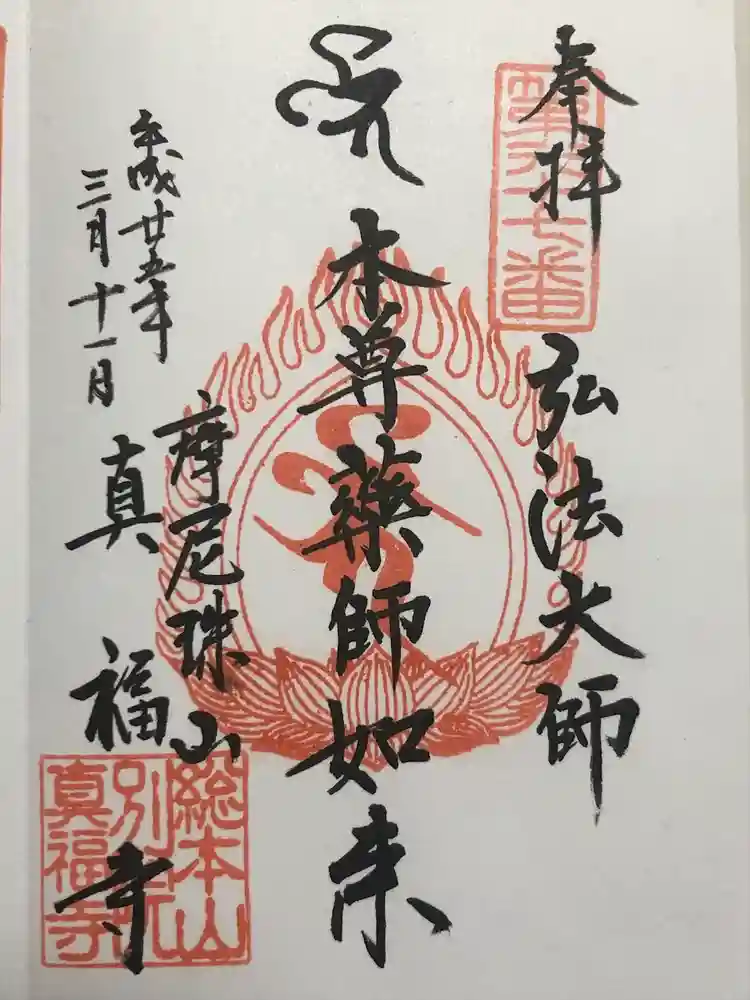 奉拝
弘法大師
本尊薬師如来
摩尼珠山
真福寺
平成廿五年
三月十一日
第六十七番
総本山
別院
真福寺